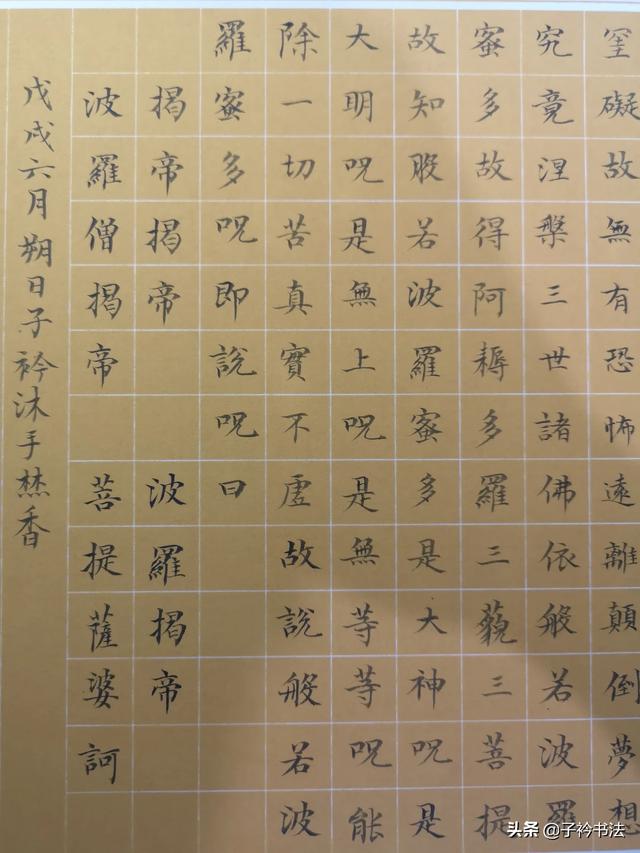 罣礙故無有恐怖遠離顛倒夢想
究竟涅槃三世諸佛依般若波羅
蜜多故得阿耨多羅三藐三菩提
故知般若波羅蜜多是大神呪是
大明呪是無上呪是無等等呪能
除一切苦真實不虛故說般若波
羅蜜多呪即說呪曰
揭帝揭帝 波羅揭帝
波羅僧揭帝 菩提薩婆訶
戊戌六月朔日子衿沐手焚香
头条 @子衿书法